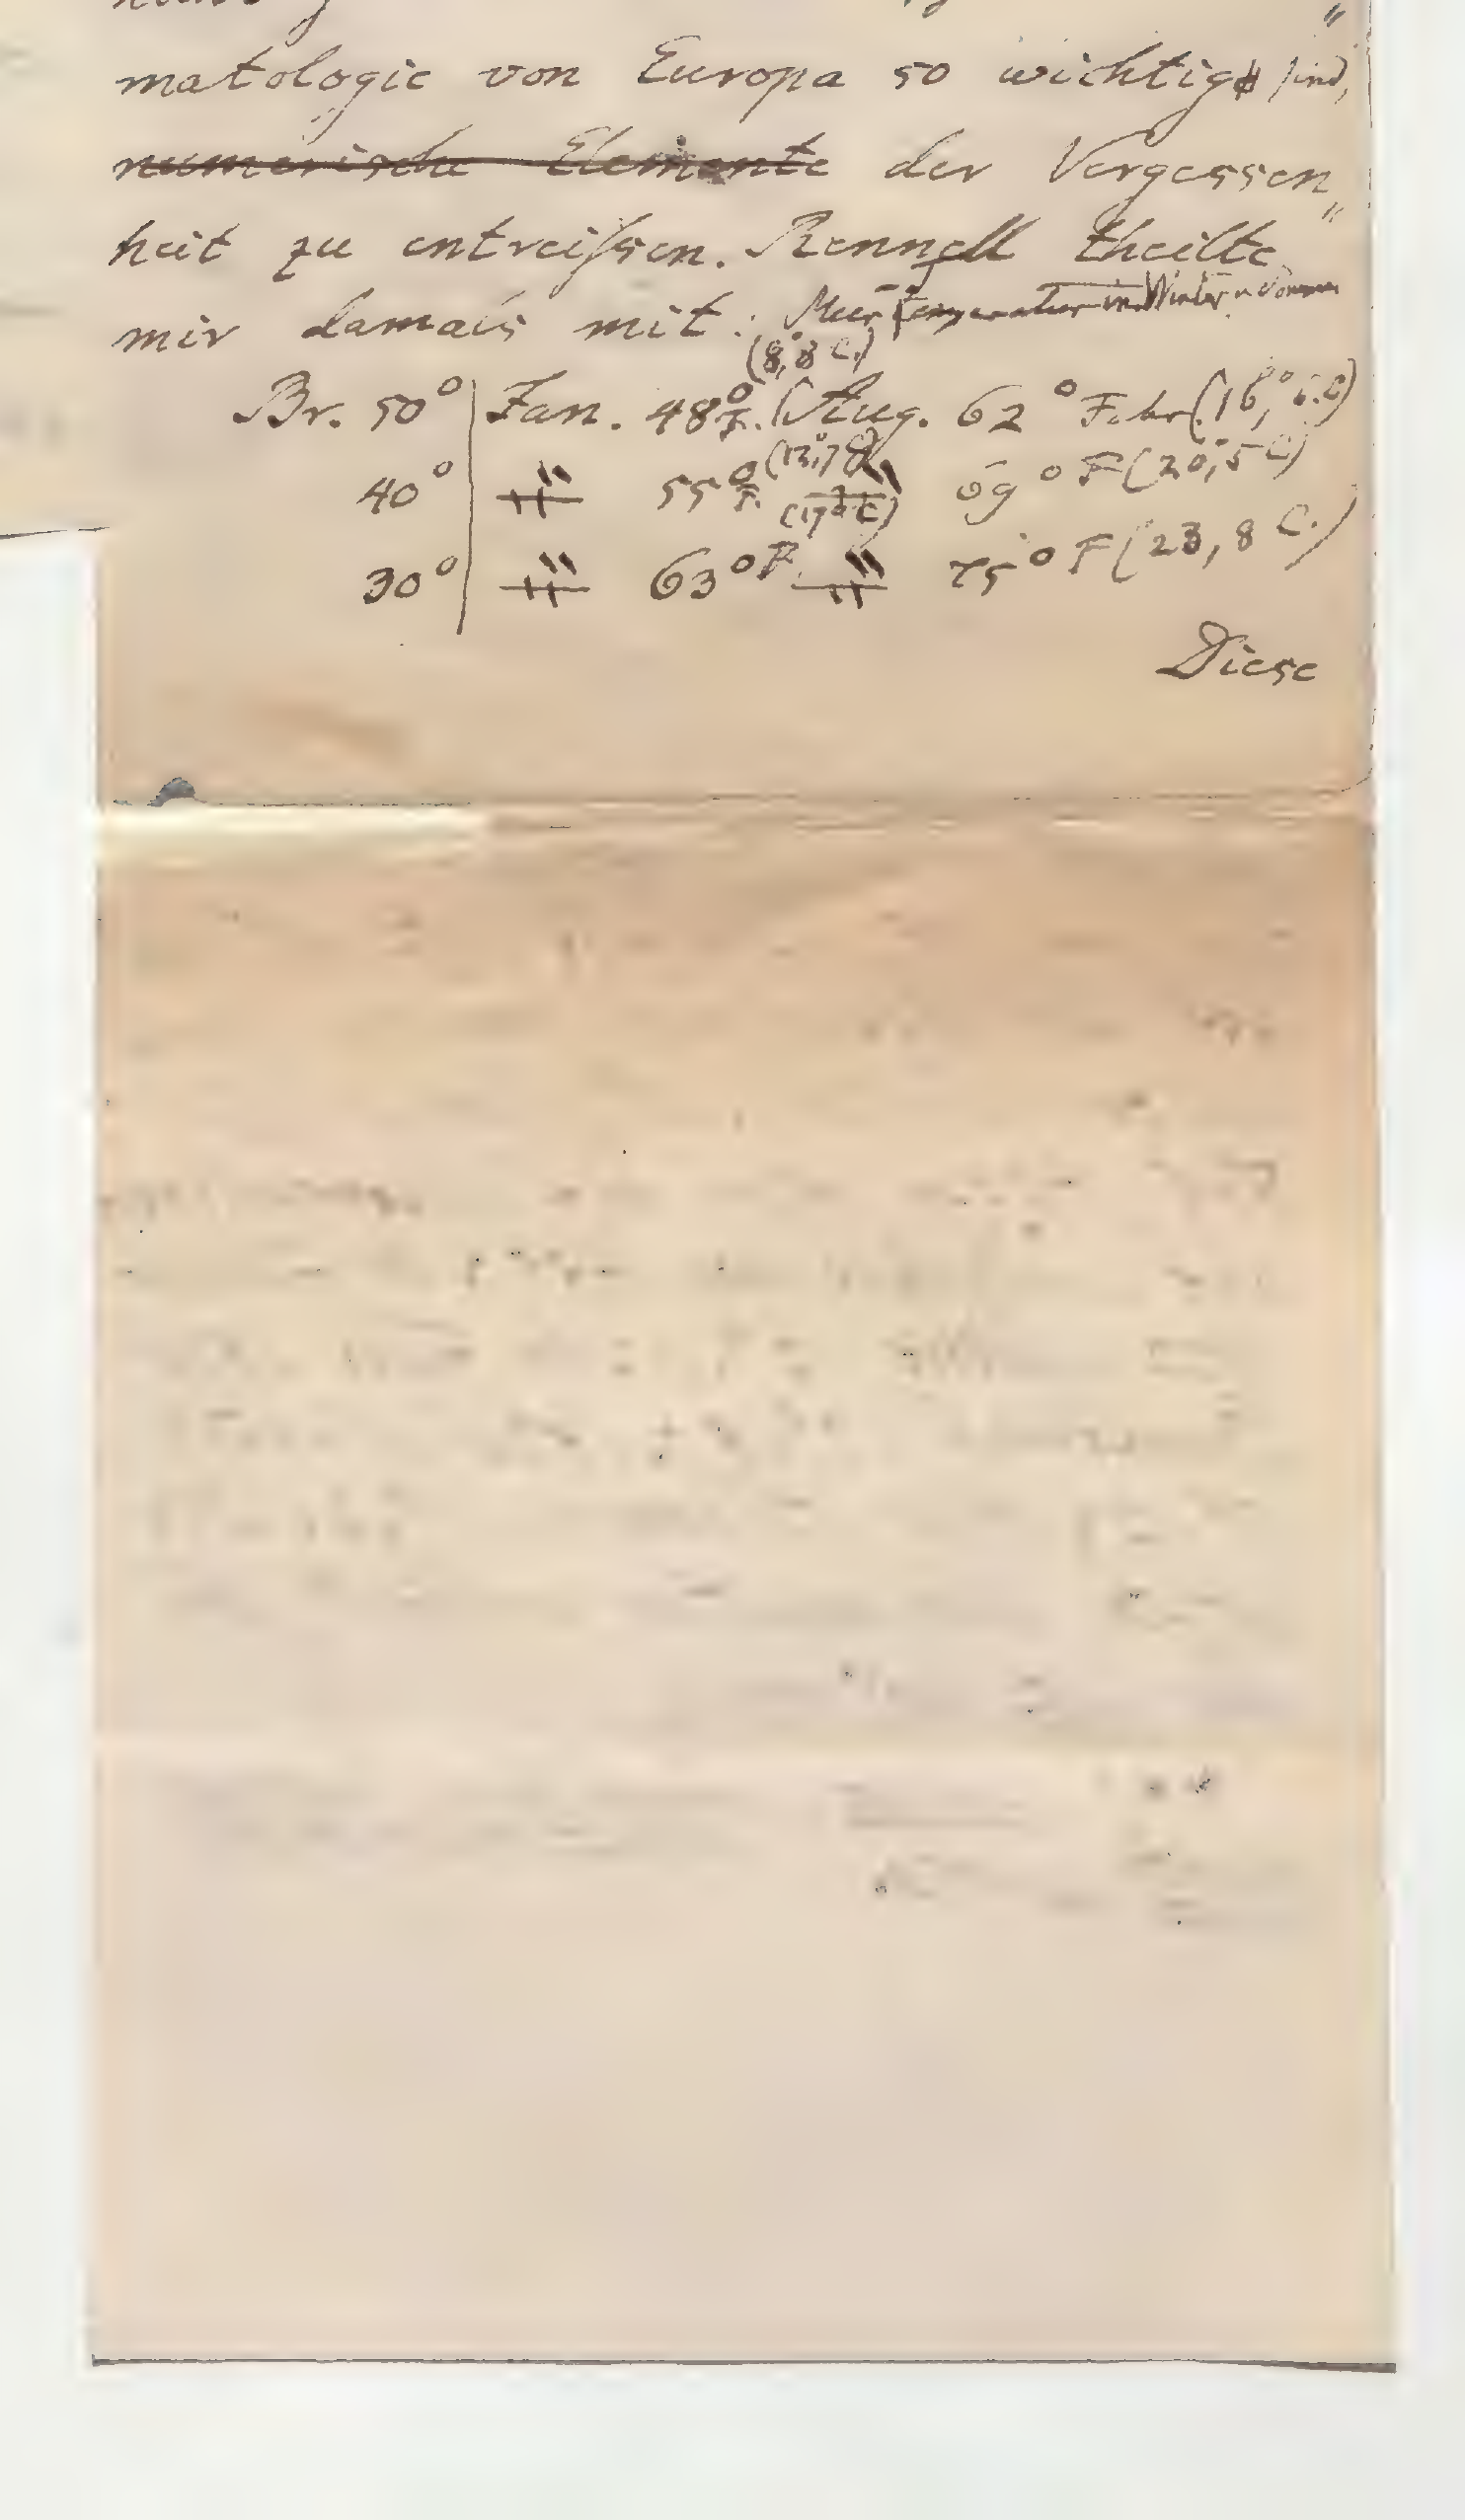 matologie von Europa so wichtig sind,
numerische Elemente der Vergessen„
heit zu entreißen. Rennell theilte
mir damals mit: Meer temperatur in Winter u Sommer
(8,°8 C.)
Br. 50° Jan. 48° F. Aug. 62° Fahr (16,°6 C)
(12,°7 C)
40° " 55° F. " 69° F (20,°5 C)
(17°,2 C)
30° " 63° F. " 75° F (23,8 C.)
Diese